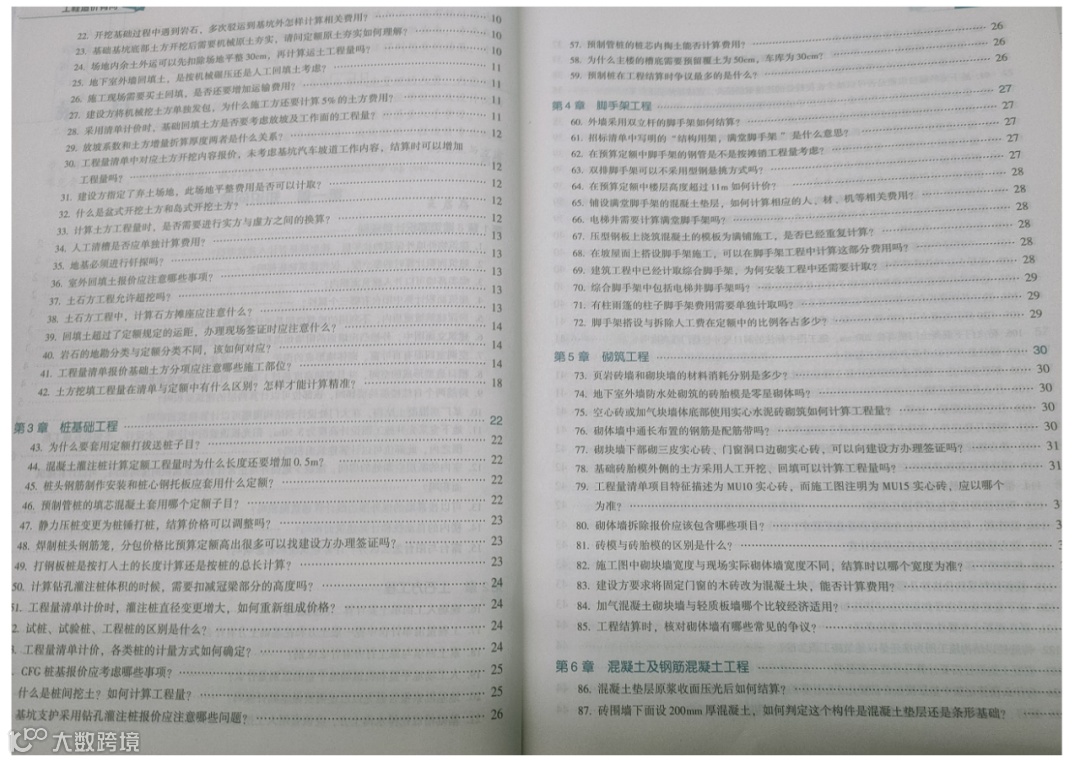 工程造价有问
22. 开挖基础过程中遇到岩石，多次驳运到基坑外怎样计算相关费用？ 10
23. 基础基坑底部土方开挖后需要机械原土夯实，请问定额原土夯实如何理解？ 10
24. 场地内余土外运可以先扣除场地平整30cm，再计算运土工程量吗？ 10
25. 地下室外墙回填土，是按机械碾压还是人工回填土考虑？ 11
26. 施工现场需要买土回填，是否还要增加运输费用？ 11
27. 建设方将机械挖土方单独发包，为什么施工方还要计算5%的土方费用？ 11
28. 采用清单计价时，基础回填土方是否要考虑放坡及工作面的工程量？ 11
29. 放坡系数和土方增量折算厚度两者是什么关系？ 12
30. 工程量清单中对应土方开挖内容报价，未考虑基坑汽车坡道工作内容，结算时可以增加
工程量吗？ 12
31. 建设方指定了弃土场地，此场地平整费用是否可以计取？ 12
32. 什么是盆式开挖土方和岛式开挖土方？ 12
33. 计算土方工程量时，是否需要进行实方与虚方之间的换算？ 12
34. 人工清槽是否应单独计算费用？ 13
35. 地基必须进行钎探吗？ 13
36. 室外回填土报价应注意哪些事项？ 13
37. 土石方工程允许超挖吗？ 13
38. 土石方工程中，计算石方摊座应注意什么？ 13
39. 回填土超过了定额规定的运距，办理现场签证时应注意什么？ 14
40. 岩石的地勘分类与定额分类不同，该如何对应？ 14
41. 工程量清单报价基础土方分项应注意哪些施工部位？ 14
42. 土方挖填工程量在清单与定额中有什么区别？怎样才能计算精准？ 18
第3章 桩基础工程 22
43. 为什么要套用定额打拔送桩子目？ 22
44. 混凝土灌注桩计算定额工程量时为什么长度还要增加0.5m？ 22
45. 桩头钢筋制作安装和桩心钢托板应套用什么定额？ 22
46. 预制管桩的填芯混凝土套用哪个定额子目？ 22
47. 静力压桩变更为桩锤打桩，结算价格可以调整吗？ 23
48. 焊制桩头钢筋笼，分包价格比预算定额高出很多可以找建设方办理签证吗？ 23
49. 打钢板桩是按打人土的长度计算还是按桩的总长计算？ 23
50. 计算钻孔灌注桩体积的时候，需要扣减冠梁部分的高度吗？ 24
51. 工程量清单计价时，灌注桩直径变更增大，如何重新组成价格？ 24
2. 试桩、试验桩、工程桩的区别是什么？ 24
. 工程量清单计价，各类桩的计量方式如何确定？ 24
CFG桩基报价应考虑哪些事项？ 25
什么是桩间挖土？如何计算工程量？ 25
基坑支护采用钻孔灌注桩报价应注意哪些问题？ 26
57. 预制管桩的桩芯内掏土能否计算费用？ 26
58. 为什么主楼的槽底需要预留覆土为50cm，车库为30cm？ 26
59. 预制桩在工程结算时争议最多的是什么？ 26
第4章 脚手架工程 27
60. 外墙采用双立杆的脚手架如何结算？ 27
61. 招标清单中写明的“结构用架，满堂脚手架”是什么意思？ 27
62. 在预算定额中脚手架的钢管是不是按摊销工程量考虑？ 27
63. 双排脚手架可以不采用型钢悬挑方式吗？ 27
64. 在预算定额中楼层高度超过11m如何计价？ 28
65. 铺设满堂脚手架的混凝土垫层，如何计算相应的人、材、机等相关费用？ 28
66. 电梯井需要计算满堂脚手架吗？ 28
67. 压型钢板上浇筑混凝土的模板为满铺施工，是否已经重复计算？ 28
68. 在坡屋面上搭设脚手架施工，可以在脚手架工程中计算这部分费用吗？ 28
69. 建筑工程中已经计取综合脚手架，为何安装工程中还需要计取？ 28
70. 综合脚手架中包括电梯井脚手架吗？ 29
71. 有柱雨蓬的柱子脚手架费用需要单独计取吗？ 29
72. 脚手架搭设与拆除人工费在定额中的比例各占多少？ 29
第5章 砌筑工程 30
73. 页岩砖墙和砌块墙的材料消耗分别是多少？ 30
74. 地下室外墙防水处砌筑的砖胎模是零星砌体吗？ 30
75. 空心砖或加气块墙体底部使用实心水泥砖砌筑如何计算工程量？ 30
76. 砌体墙中通长布置的钢筋是配筋带吗？ 30
77. 砌块墙下部砌三皮实心砖、门窗洞口边砌实心砖，可以向建设方办理签证吗？ 31
78. 基础砖胎模外侧的土方采用人工开挖、回填可以计算工程量吗？ 31
79. 工程量清单项目特征描述为MU10实心砖，而施工图注明为MU15实心砖，应以哪个
为准？ 3
80. 砌体墙拆除报价应该包含哪些项目？ 3
81. 砖模与砖胎模的区别是什么？ 3
82. 施工图中砌块墙宽度与现场实际砌体墙宽度不同，结算时以哪个宽度为准？
83. 建设方要求将固定门窗的木砖改为混凝土块，能否计算费用？
84. 加气混凝土砌块墙与轻质板墙哪个比较经济适用？
85. 工程结算时，核对砌体墙有哪些常见的争议？
第6章 混凝土及钢筋混凝土工程
86. 混凝土垫层原浆收面压光后如何结算？
87. 砖围墙下面设200mm厚混凝土，如何判定这个构件是混凝土垫层还是条形基础？
大数跨境